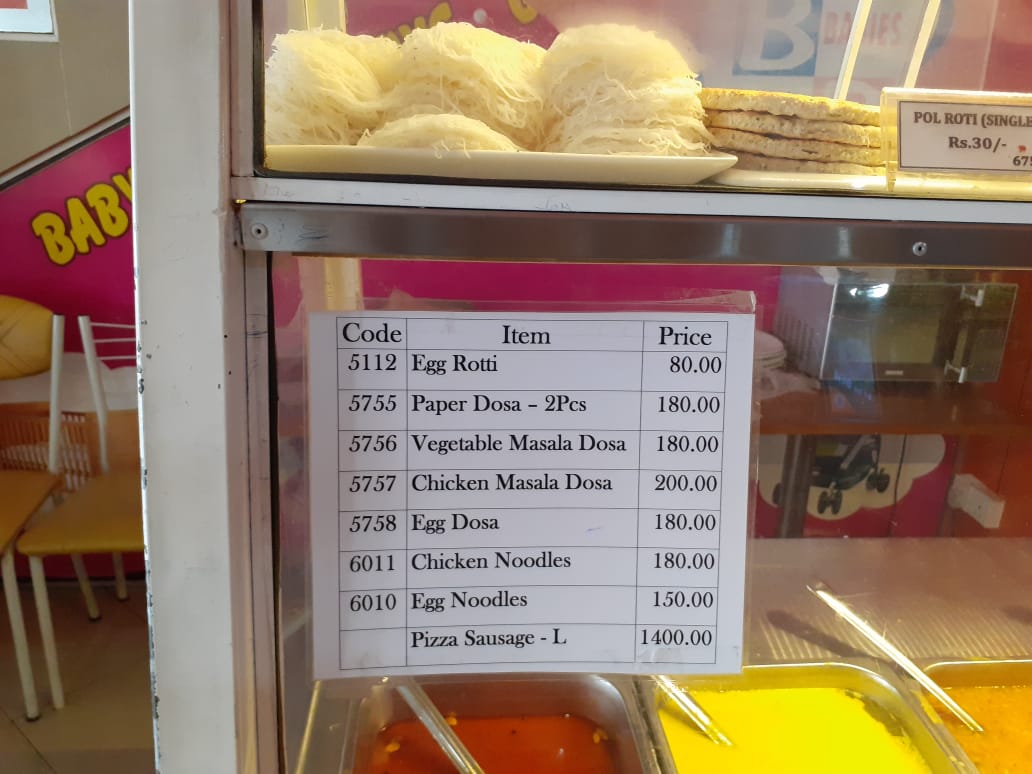 B
BABIES
POL ROTI (SINGLE
Rs.30/-
675
BABI
Code Item Price
5112 Egg Rotti 80.00
5755 Paper Dosa – 2Pcs 180.00
5756 Vegetable Masala Dosa 180.00
5757 Chicken Masala Dosa 200.00
5758 Egg Dosa 180.00
6011 Chicken Noodles 180.00
6010 Egg Noodles 150.00
Pizza Sausage - L 1400.00